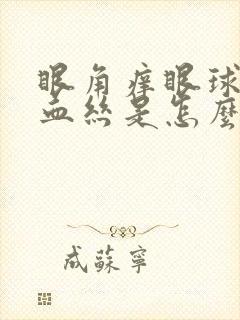 眼角痒眼球
血丝是怎麼
成蘇寧